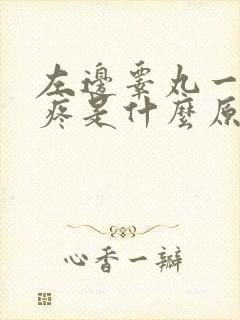 左邊睾丸一
疼是什麼原
心香一瓣